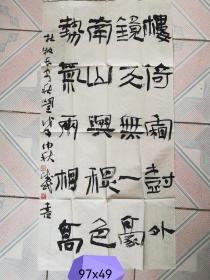 樓倚霜樹外
鏡天無一毫
南山與秋色
勢氣兩相高
杜牧長安秋望 仲秋 書
97x49